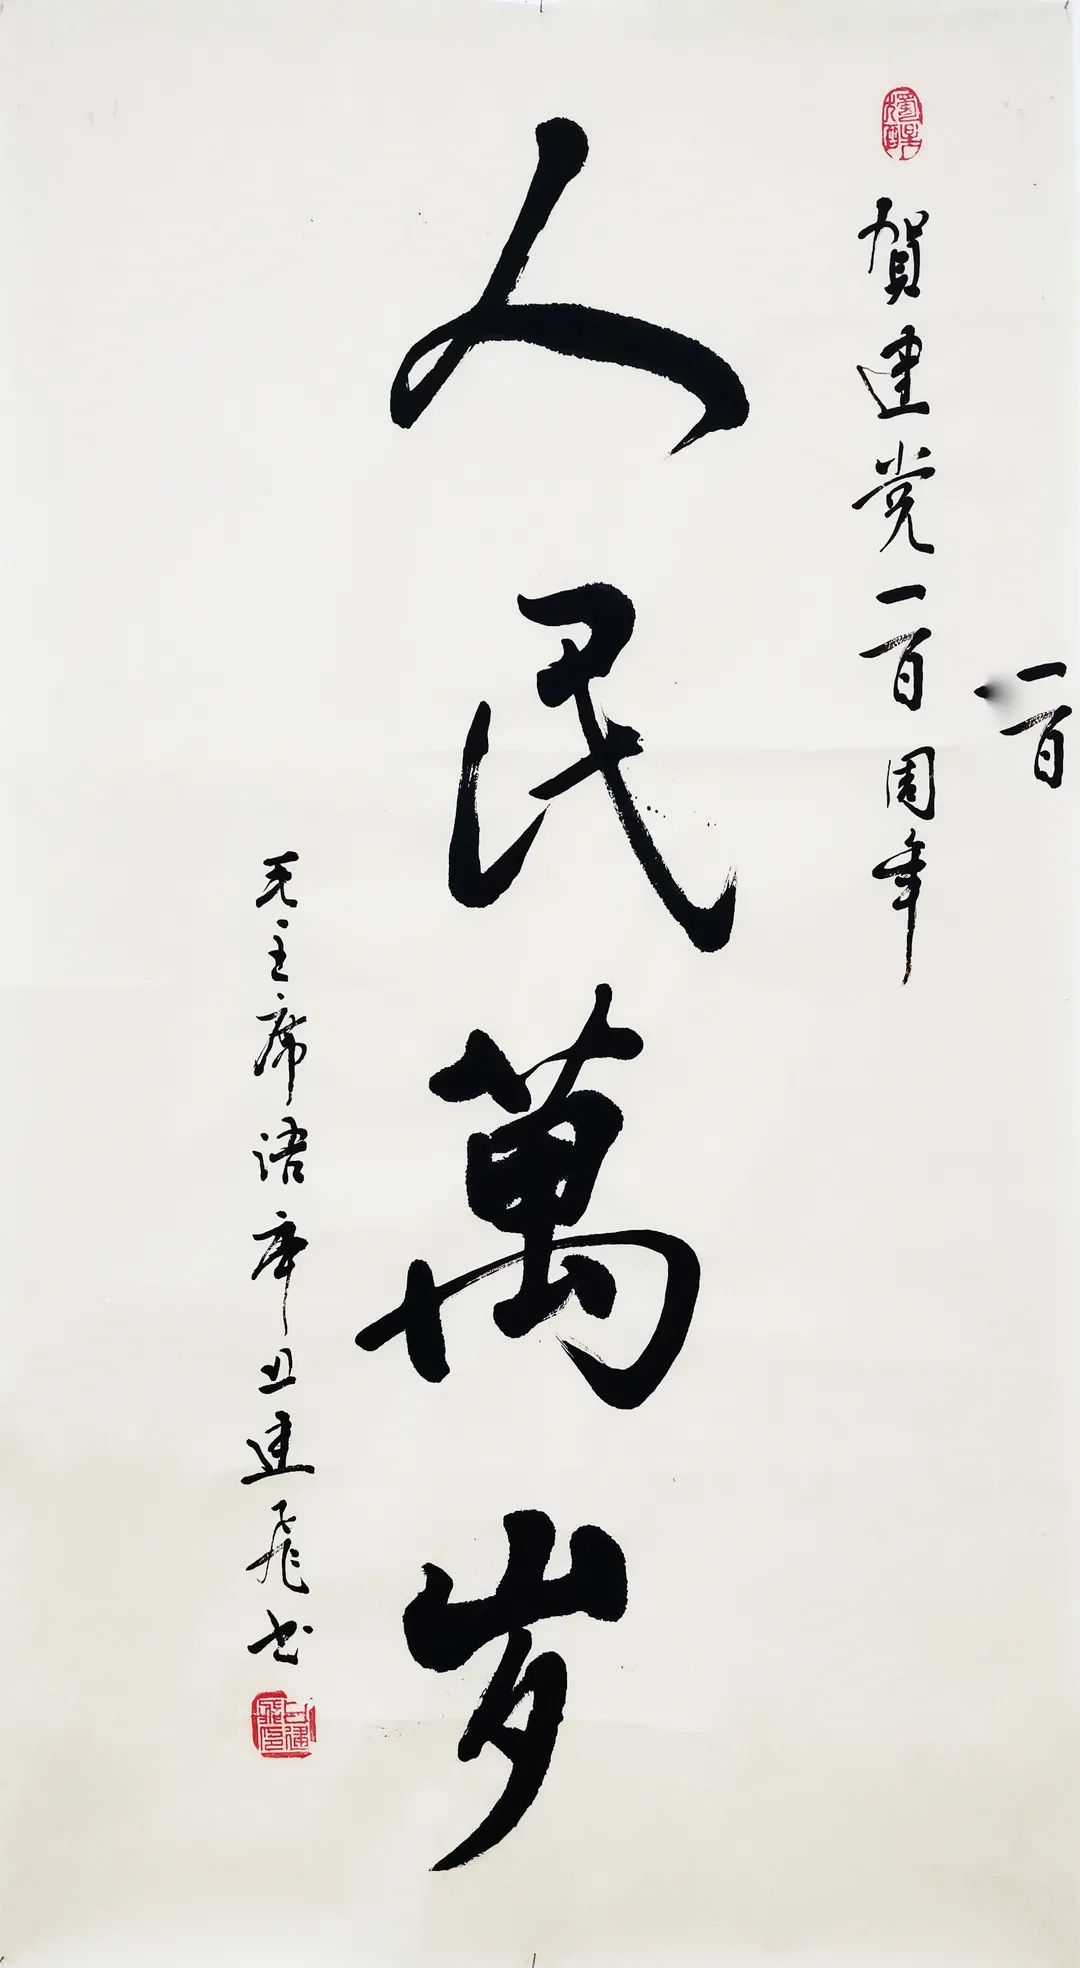 一百
贺建党一百周年
人民萬岁
毛主席语辛丑建飛书